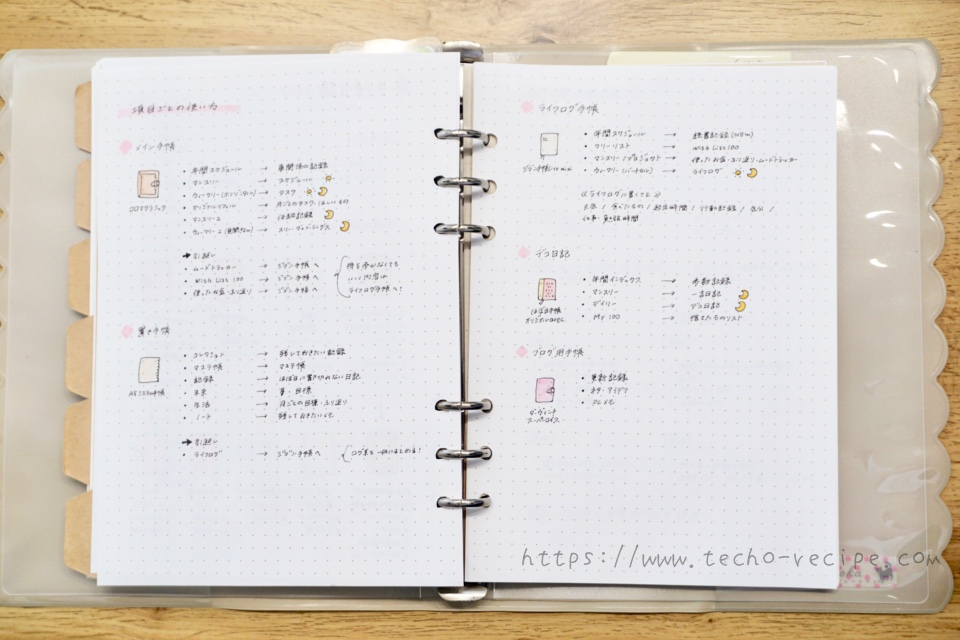 項目ごとの使い方
メイン手帳
クロマクラシック
• 年間スケジュール → 夜間頃の記録
• マンスリー → スケジュール
• ウィークリー → タスク
• → 月ごとのタスク、ほしいもの
• マンスリー2 → 体調記録
• ウィークリー2 → スリーグッドシングス
→ 引越し
• ムードトラッカー → ジブン手帳へ
• Wish List 100 → ジブン手帳へ
• 使ったお金・ふり返り → ジブン手帳へ
持ち歩かなくても
いい内容は
ライフログ手帳へ!
置き手帳
A5システム手帳
• コレクション → 残しておきたい記録
• マステ帳 → マステ帳
• 記録 → ほぼ日に書ききれない日記
• 未来 → 夢・目標
• 生活 → 月ごとの目標・ふり返り
• ノート → 残しておきたいメモ
→ 引越し
• ライフログ → ジブン手帳へ
ログ系を一冊にまとめる!
ライフログ手帳
ジブン手帳Lite mini
• 年間スケジュール → 読書記録 (NEW)
• フリーリスト → Wish List 100
• マンスリー/プロジェクト → 使ったお金・ふり返り・ムードトラッカー
• ウィークリー (バーチカル) → ライフログ
《ライフログに書くこと》
天気 / 食べたもの / 起床時間 / 行動記録 / 気分 /
仕事・勉強時間
デコ日記
ほぼ日手帳
オリジナルavec
• 年間インデックス → 歩数記録
• マンスリー → 一言日記
• デイリー → デコ日記
• My 100 → 捨てたものリスト
ブログ用手帳
ダ・ヴィンチ
スーパーロイス
• 更新記録
• ネタ・アイデア
• メモ
https://www.techo-recipe.com